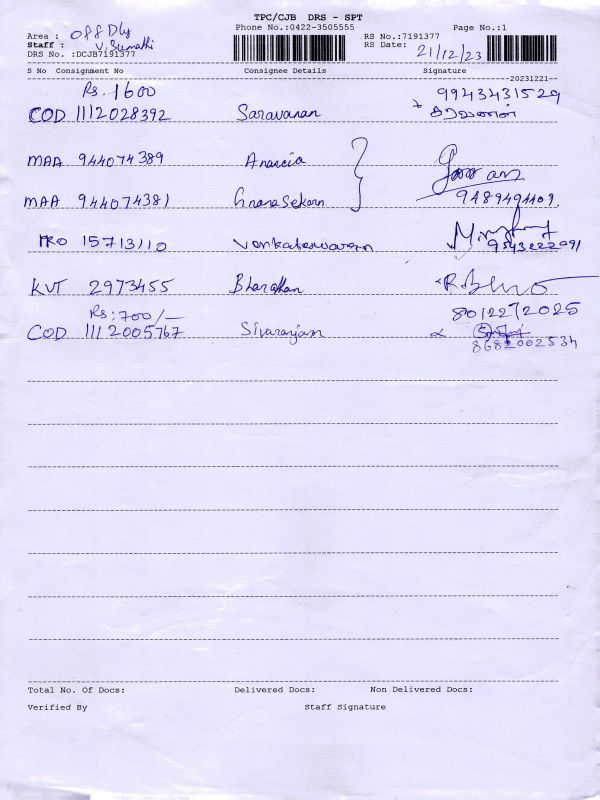 TPC/CJB DRS - SPT
Phone No.:0422-3505555 Page No.:1
Area : Off Dly
Staff : V. Sumathi
DRS No. :DCJB7191377
RS No.:7191377
RS Date: 21/12/23
S No Consignment No Consignee Details Signature
20231221--
Rs. 1600 9943431529
COD 1112028392 Saravanan சரவணன்
MAA 944074389
MAA 944074381 GnanaSekarn 9489494409
PRO 15713110 Venkateswaran 9543222091
KVT 2973455 Bharathan
Rs: 700/- 8012272025
COD 1112005767 Sivaranjani
8682002534
Total No. Of Docs: Delivered Docs: Non Delivered Docs:
Verified By Staff Signature